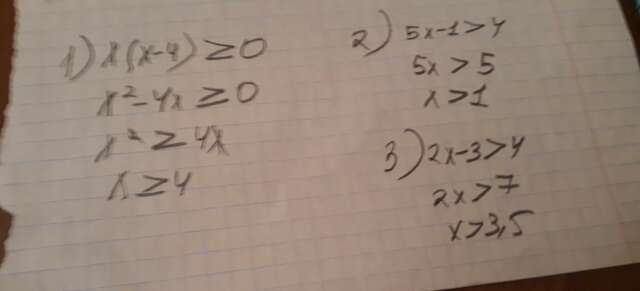 1) x(x-4) ≥ 0
x²-4x ≥ 0
x² ≥ 4x
x ≥ 4
2) 5x-1>4
5x > 5
x > 1
3) 2x-3>4
2x>7
x>3,5